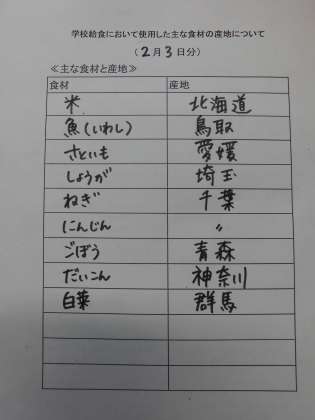 学校給食において使用した主な食材の産地について
（2月3日分）
≪主な食材と産地≫
食材 産地
米 北海道
魚（いわし） 鳥取
さといも 愛媛
しょうが 埼玉
ねぎ 千葉
にんじん 〃
ごぼう 青森
だいこん 神奈川
白菜 群馬